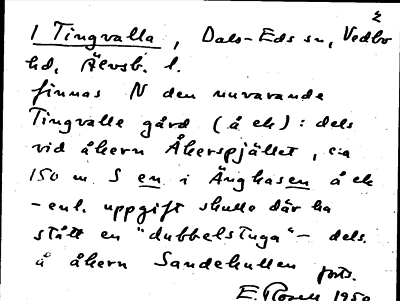 2
1 Tingvalla, Dals-Eds sn, Vedbo
hd, Älvsb. l.
finnas N den nuvarande
Tingvalla gård (å ek): dels
vid åkern Åkerspjället, c:a
150 m S en i Änghasen å ek
- enl. uppgift skulle där ha
stått en "dubbelstuga" - dels
å åkern Sandehullen forts.
E. Rosell 1950